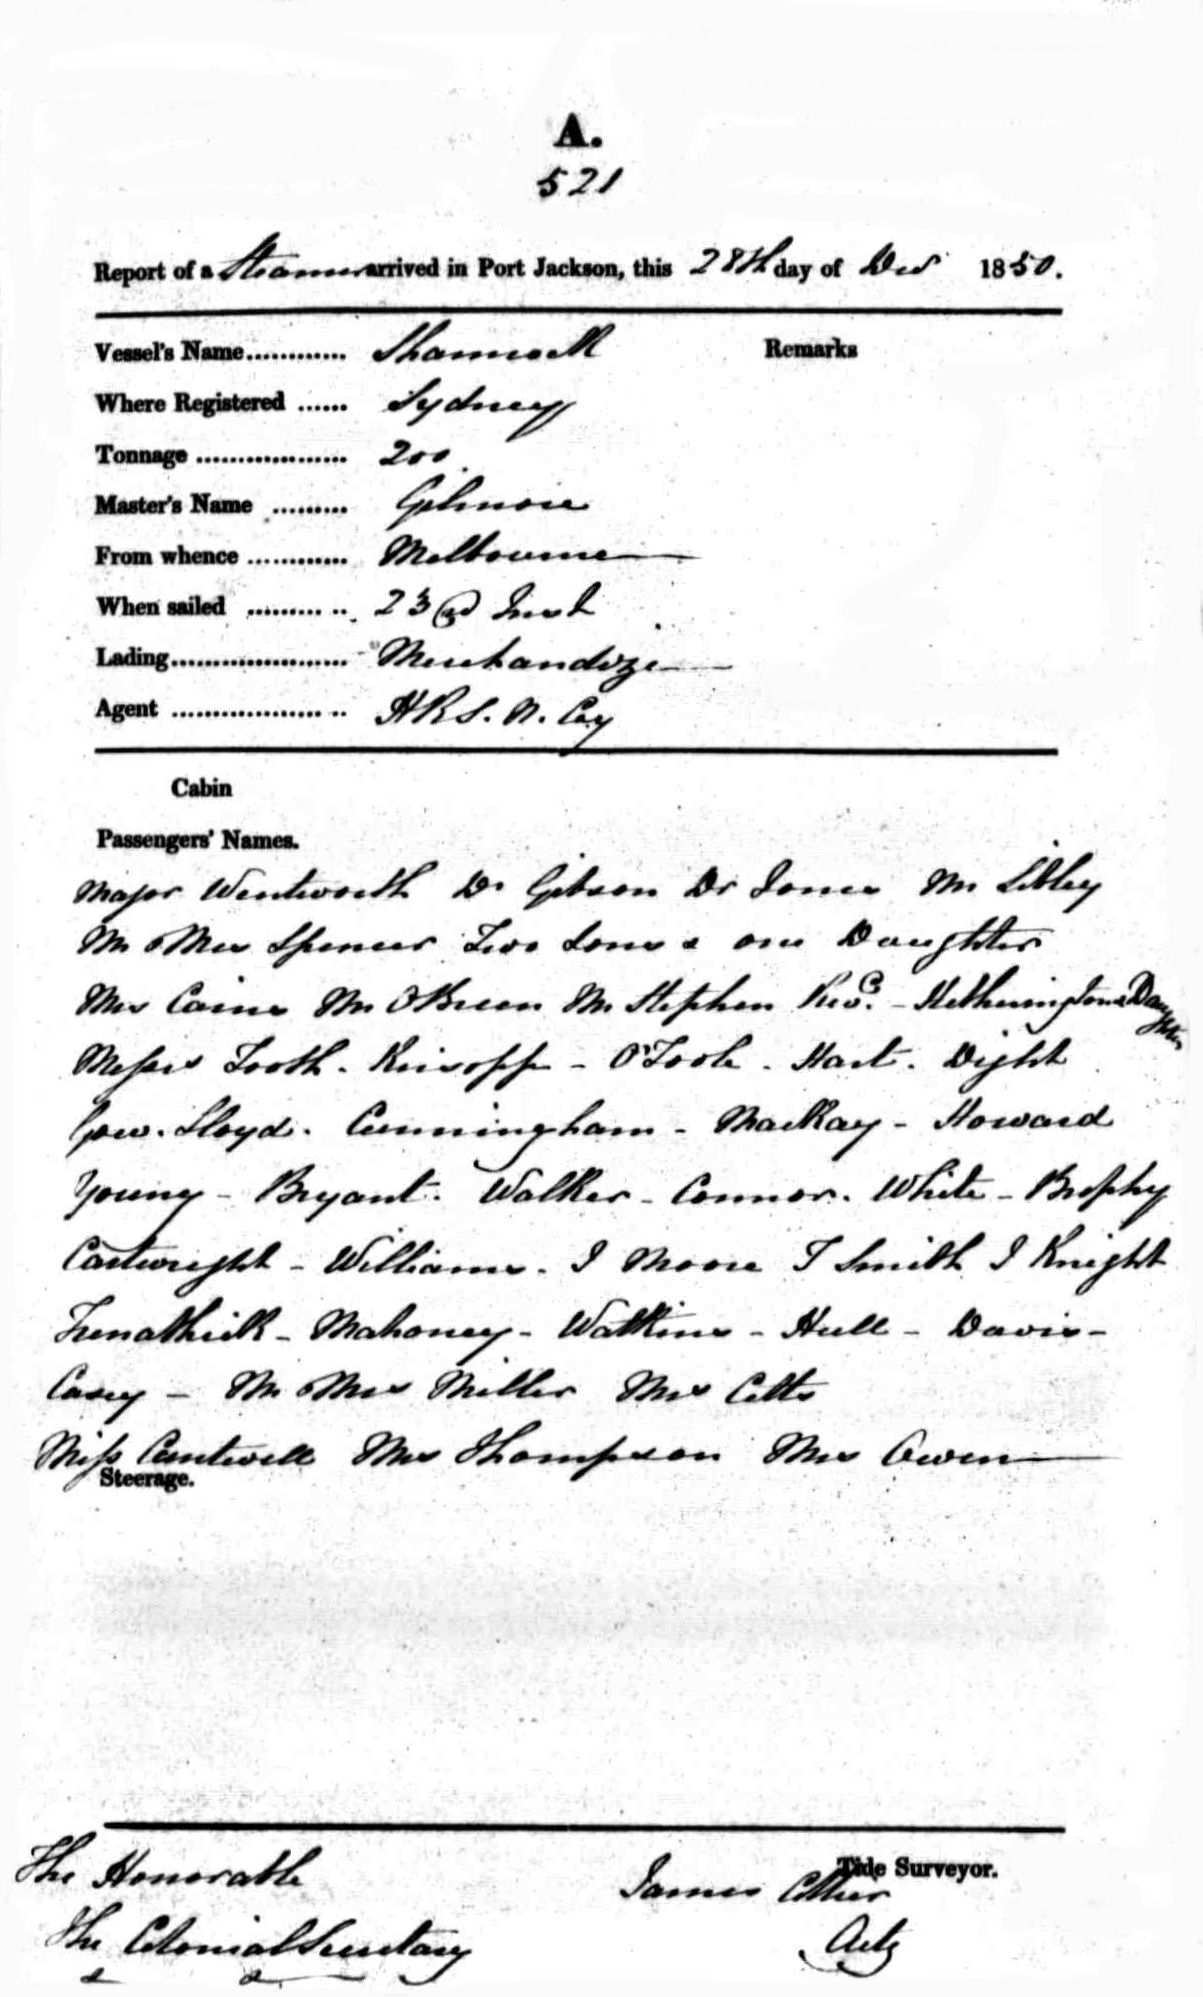 A.
521
Report of a Steamer arrived in Port Jackson, this 28th day of Dec 1850.
Vessel's Name ............ Shamrock
Remarks
Where Registered ...... Sydney
Tonnage .................. 200
Master's Name ......... Gilmore
From whence ............ Melbourne
When sailed ......... .. 23rd Inst
Lading ..................... Merchandize
Agent ................... .. H R S. N. Coy
Cabin
Passengers' Names.
Major Wentworth Dr Gibson Dr Jones Mr Sibley
Mr & Mrs Spencer Two Sons & one Daughter
Mrs Caine Mr O'Brien Mr Stephen Revd. - Hetherington & Daughter
Messrs Tooth. - O'Toole. Hart. Dight
Gow. Lloyd. Cunningham - MacKay - Howard
Young - Bryant. Walker - Connor. White - Brophy
Cartwright - Williams. J Moore T Smith J Knight
Mahoney - Watkins - Hull - Davis -
Casey - Mr & Mrs Miller Mrs
Miss Cantwell Mrs Thompson Mrs Owen
Steerage.
The Honorable
Tide Surveyor.
James
The Colonial Secretary
Actg